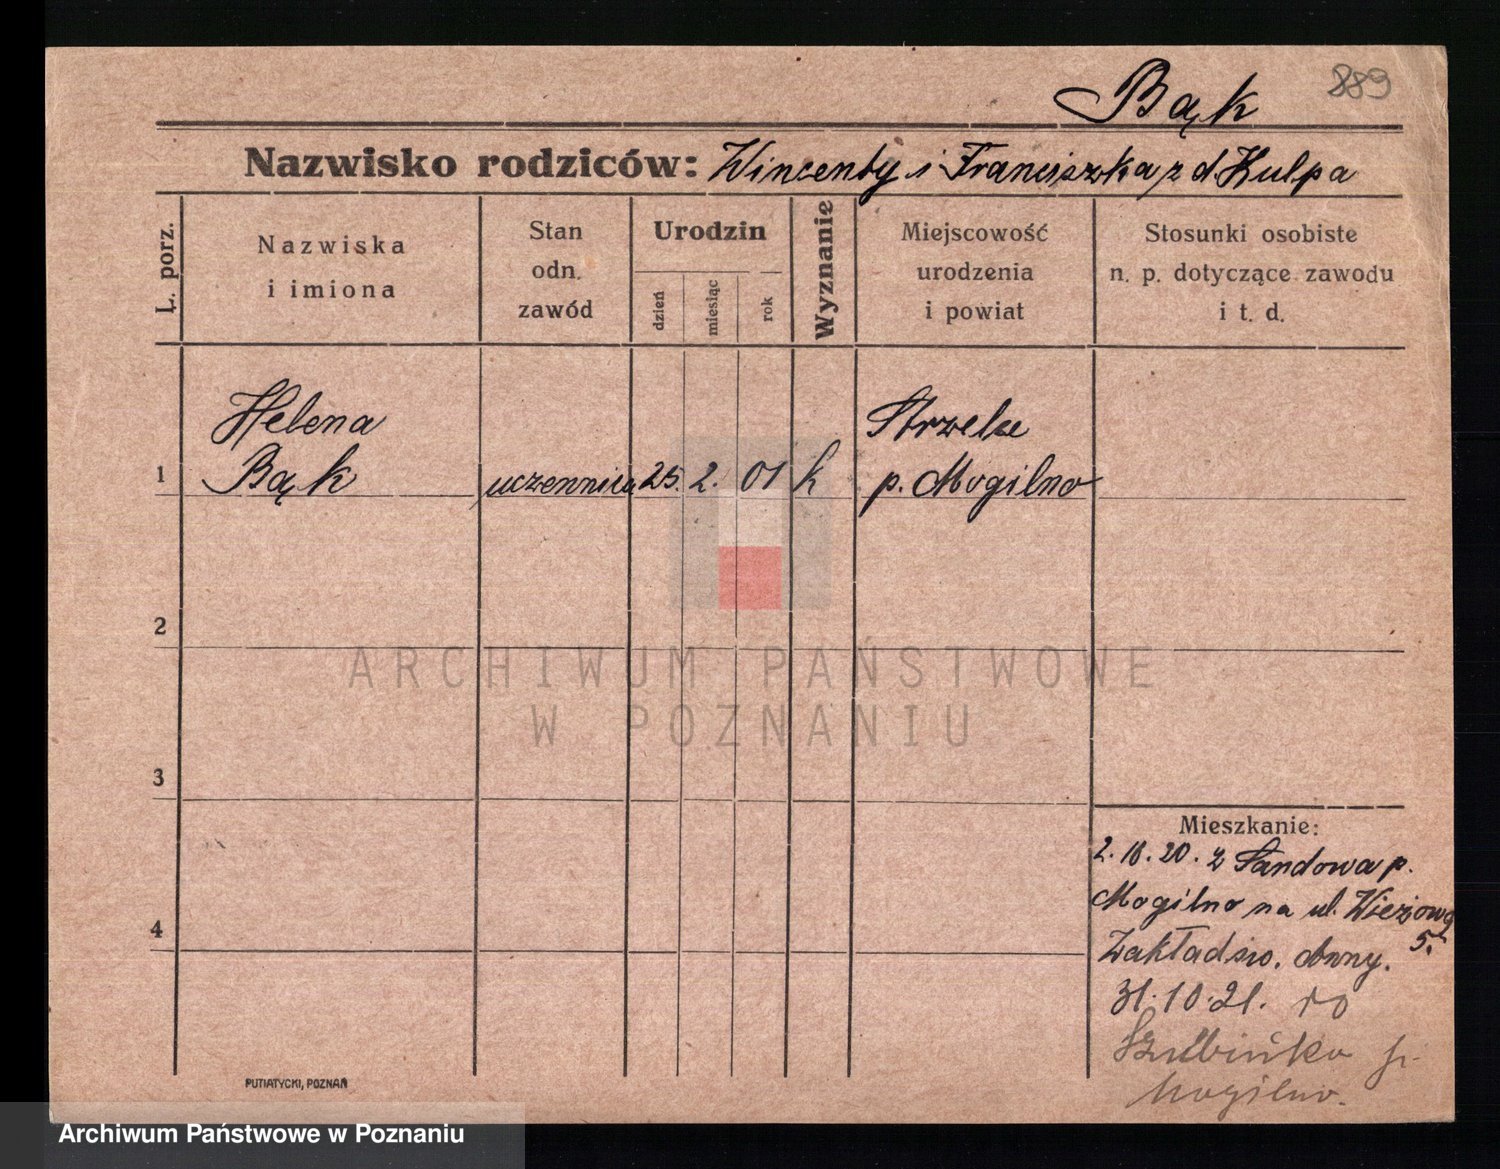 Bąk 889
Nazwisko rodziców: Wincenty i Franciszka z d. Kulpa
L. porz.
Nazwiska
i imiona
Stan
odn.
zawód
Urodzin
dzień
miesiąc
rok
Wyznanie
Miejscowość
urodzenia
i powiat
Stosunki osobiste
n. p. dotyczące zawodu
i t. d.
Helena
Bąk
1
uczennica 25. 2. 01 k
Strzelce
p. Mogilno
2
3
4
Mieszkanie:
2. 10. 20. z Sandowa p.
Mogilno na ul. Wieżową
5.
Zakład św. Anny.
31. 10. 21. do
p.
Mogilno.
PUTIATYCKI, POZNAŃ
ARCHIWUM PAŃSTWOWE
W POZNANIU
Archiwum Państwowe w Poznaniu